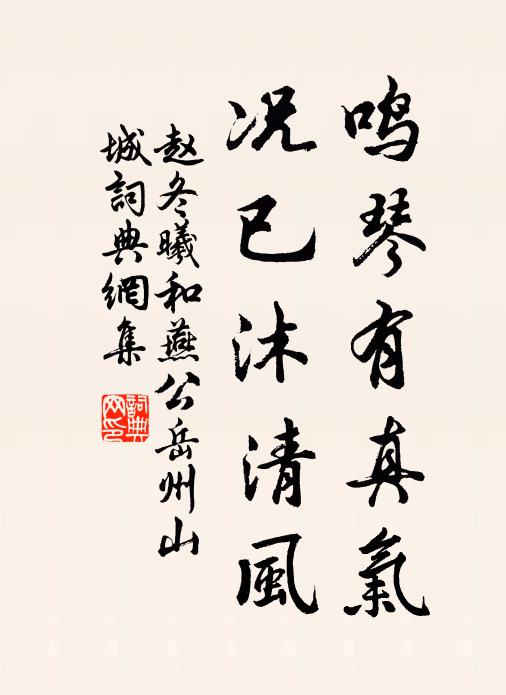 鸣琴有真氣
况已沐清風
赵冬曦和燕公岳州山
城詞典網集
詞典
网印